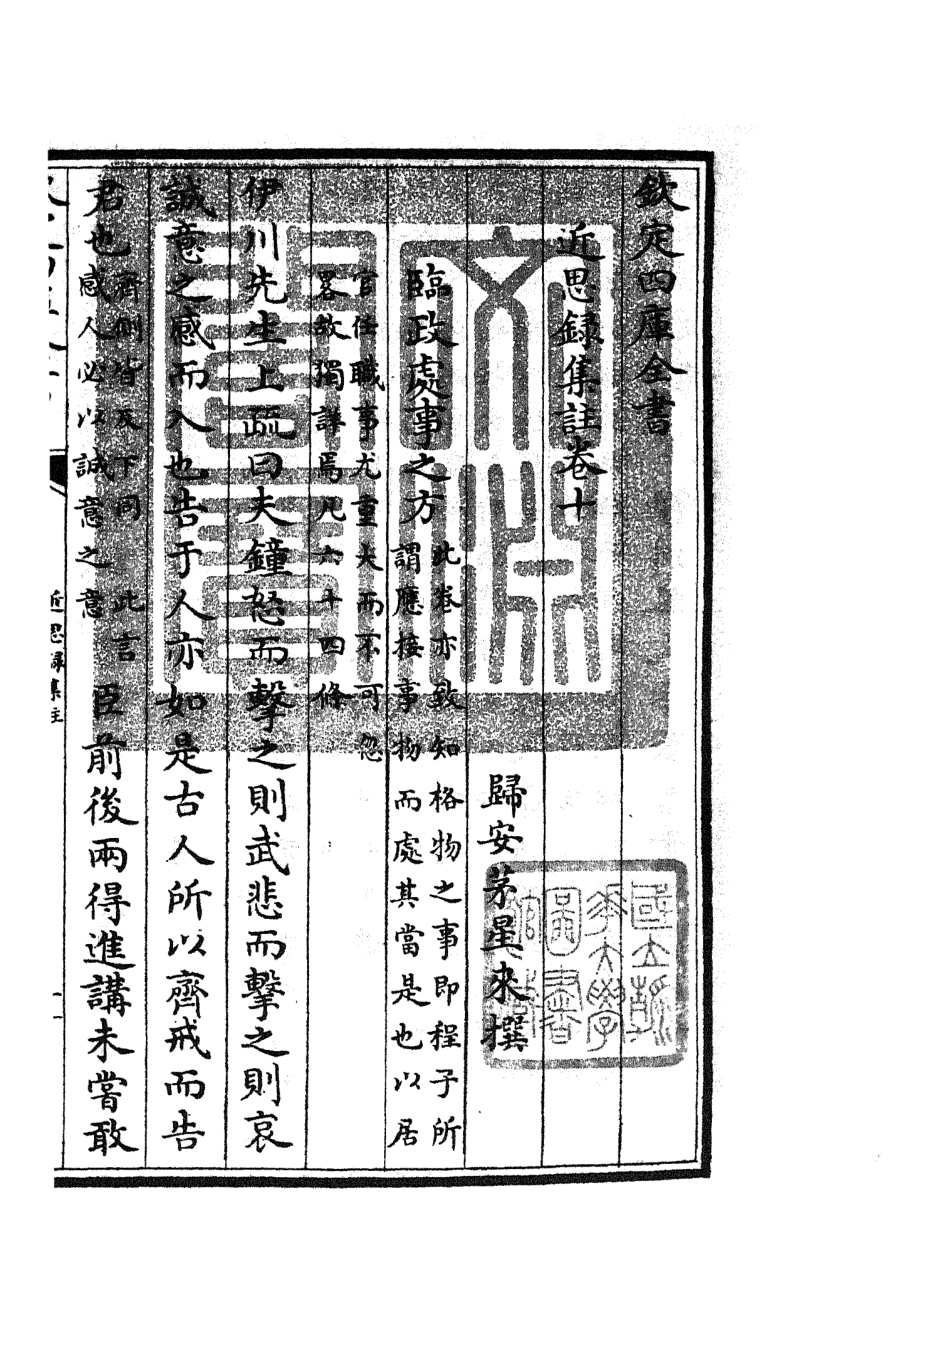 欽定四庫全書
近思録集註卷十
歸安茅星來撰
臨政處事之方此卷亦致知格物之事即程子所
謂應接事物而處其當是也以居
官任職事尤重大而不可忽
畧故獨詳焉凡六十四條
伊川先生上疏曰夫鐘怒而擊之則武悲而擊之則哀
誠意之感而入也告于人亦如是古人所以齊戒而告
君也齊側皆反下同 此言
感人必以誠意之意
臣前後兩得進講未嘗敢
近思録集註
文淵閣寶
國立清華大學圖書館藏